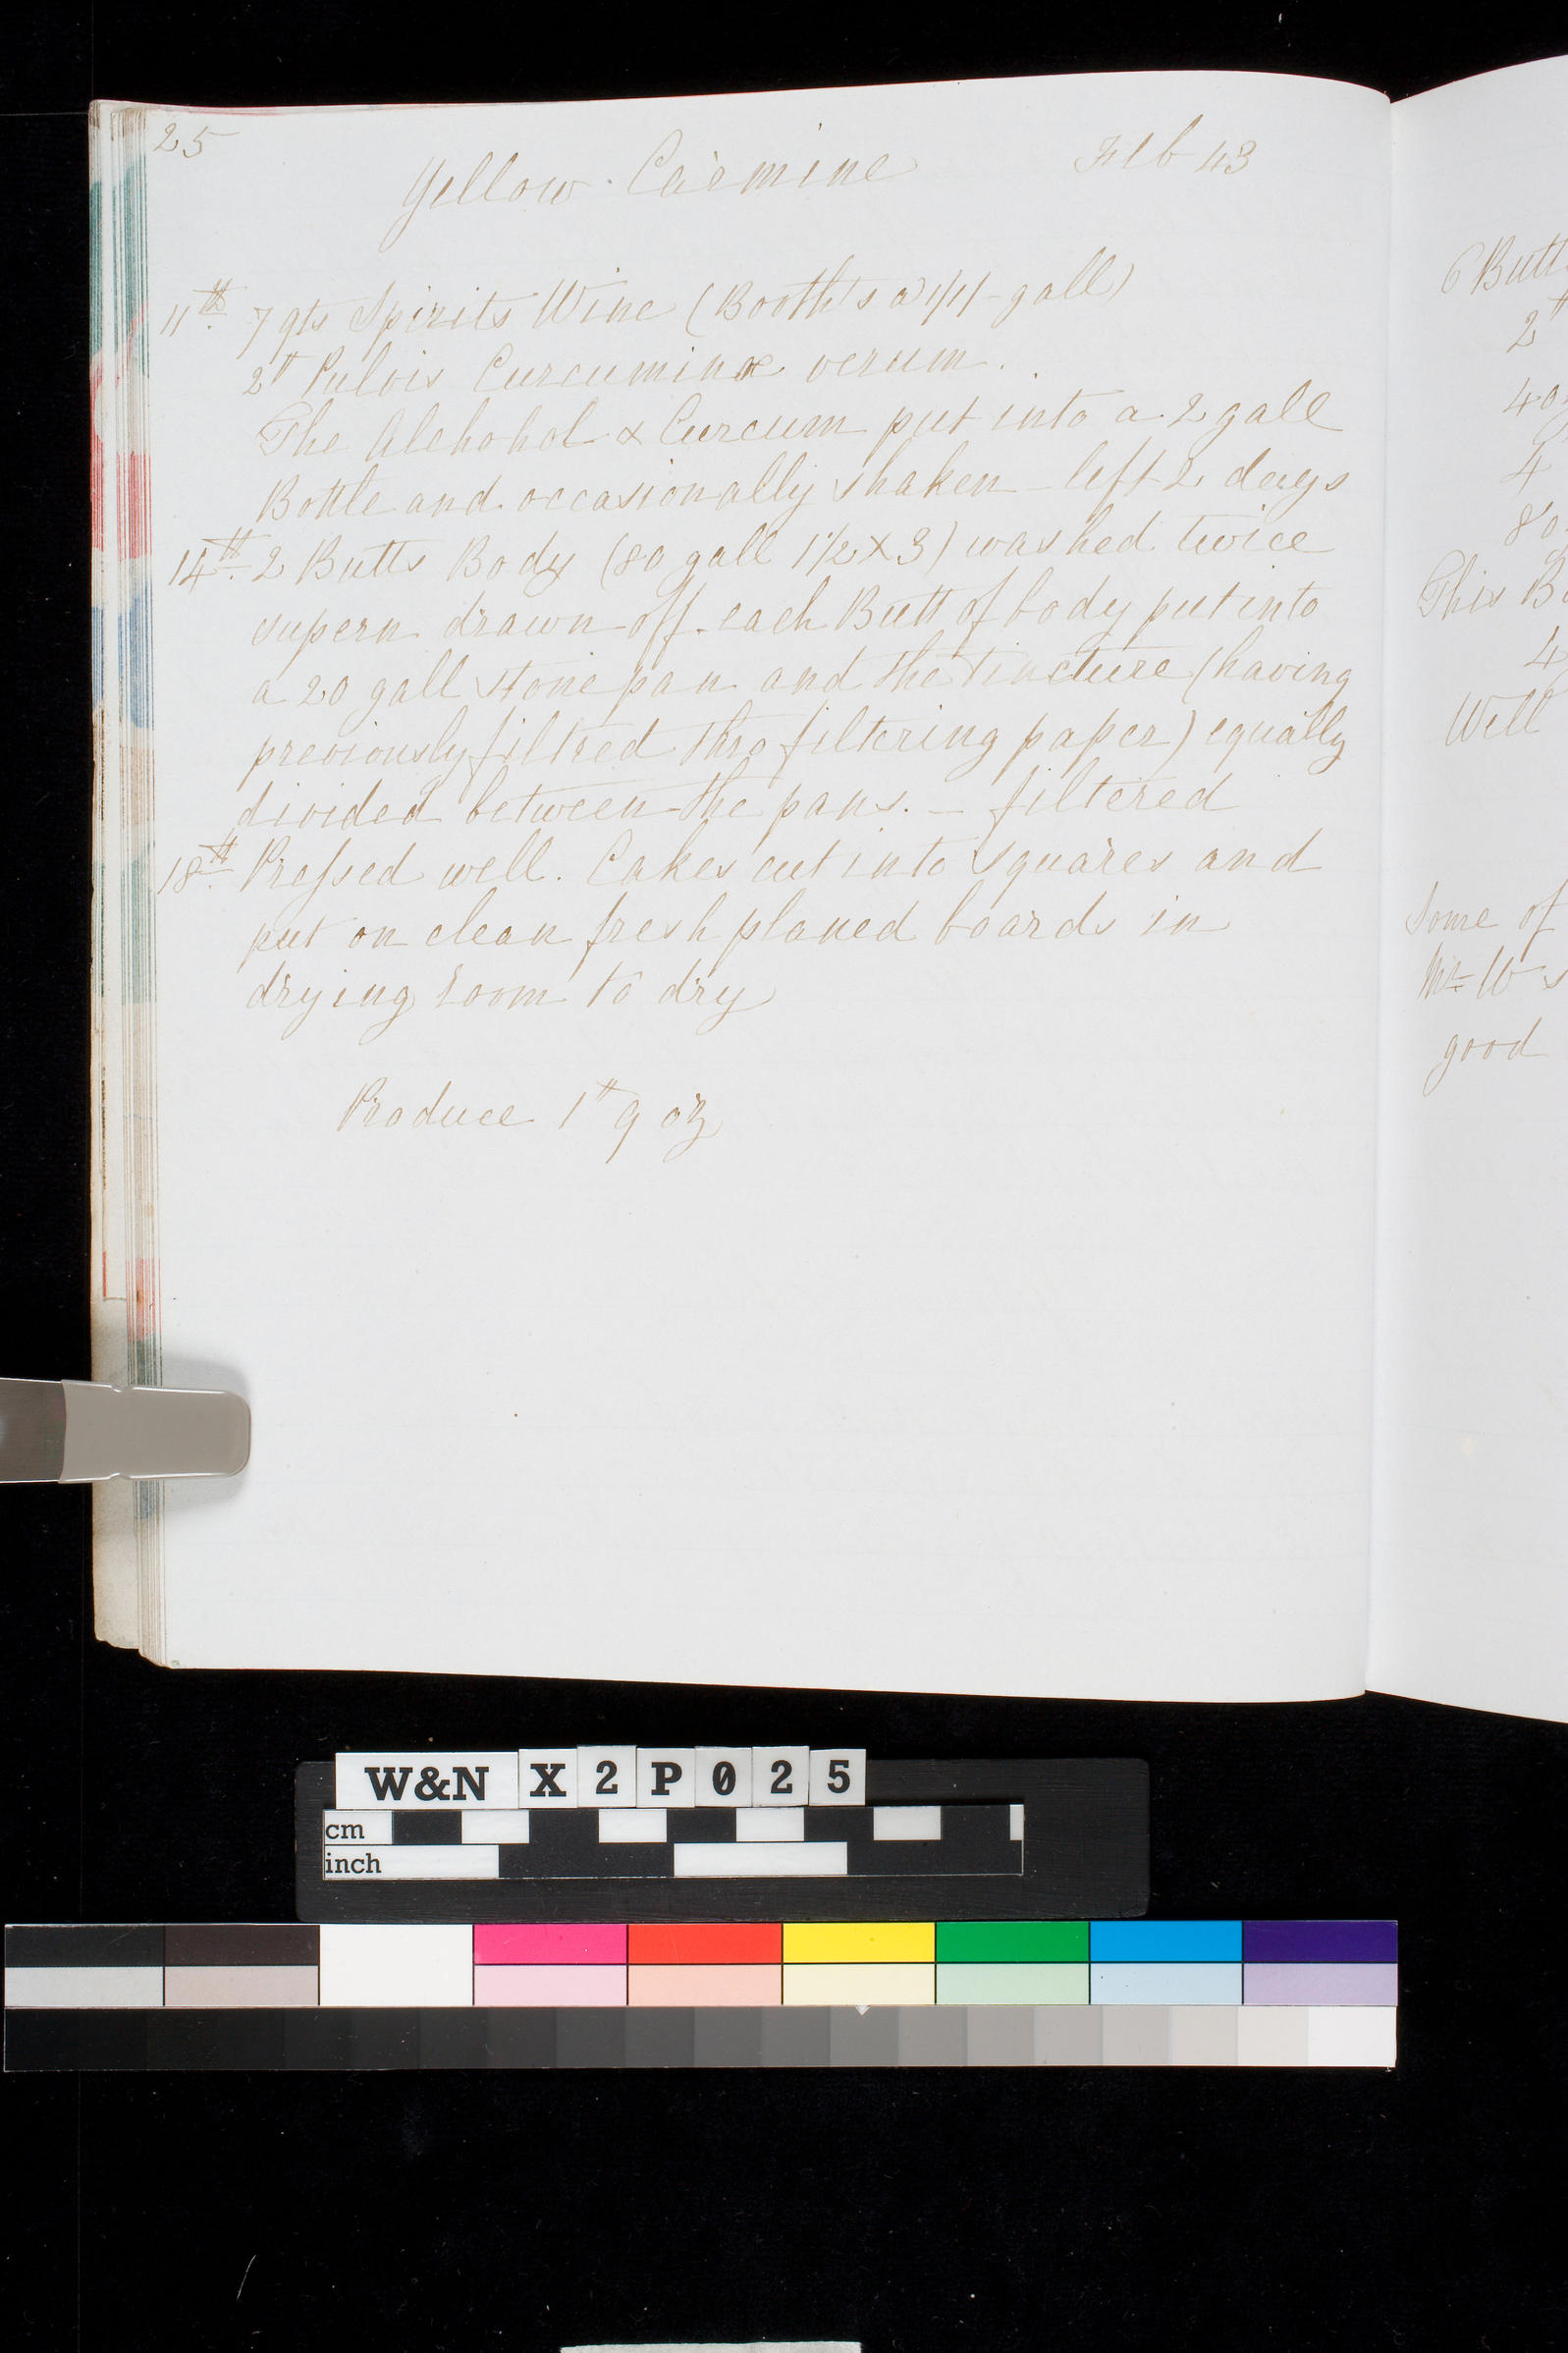 25
Yellow Carmine Feb 43
11th 7 qts Spirits Wine (Booth's a 1/11 gall)
2 lb Pulvis Curcuminæ verum.
The Alchohol & Curcum put into a 2 gall
Bottle and occasionally shaken left 2 days
14th 2 Butts Body (80 gall 1 1/2 X 3) washed twice
supern drawn off. each Butt of body put into
a 20 gall stone pan and the tincture (having
previously filtred thro filtering paper) equally
divided between the pans. – filtered
18th Pressed well. Cakes cut into squares and
put on clean fresh planed boards in
drying room to dry
Produce 1 lb 9 oz
6 Butt
2
40
4
80
This B
4
Well
Some of
Mr W s
good
W&N X2P025
cm
inch